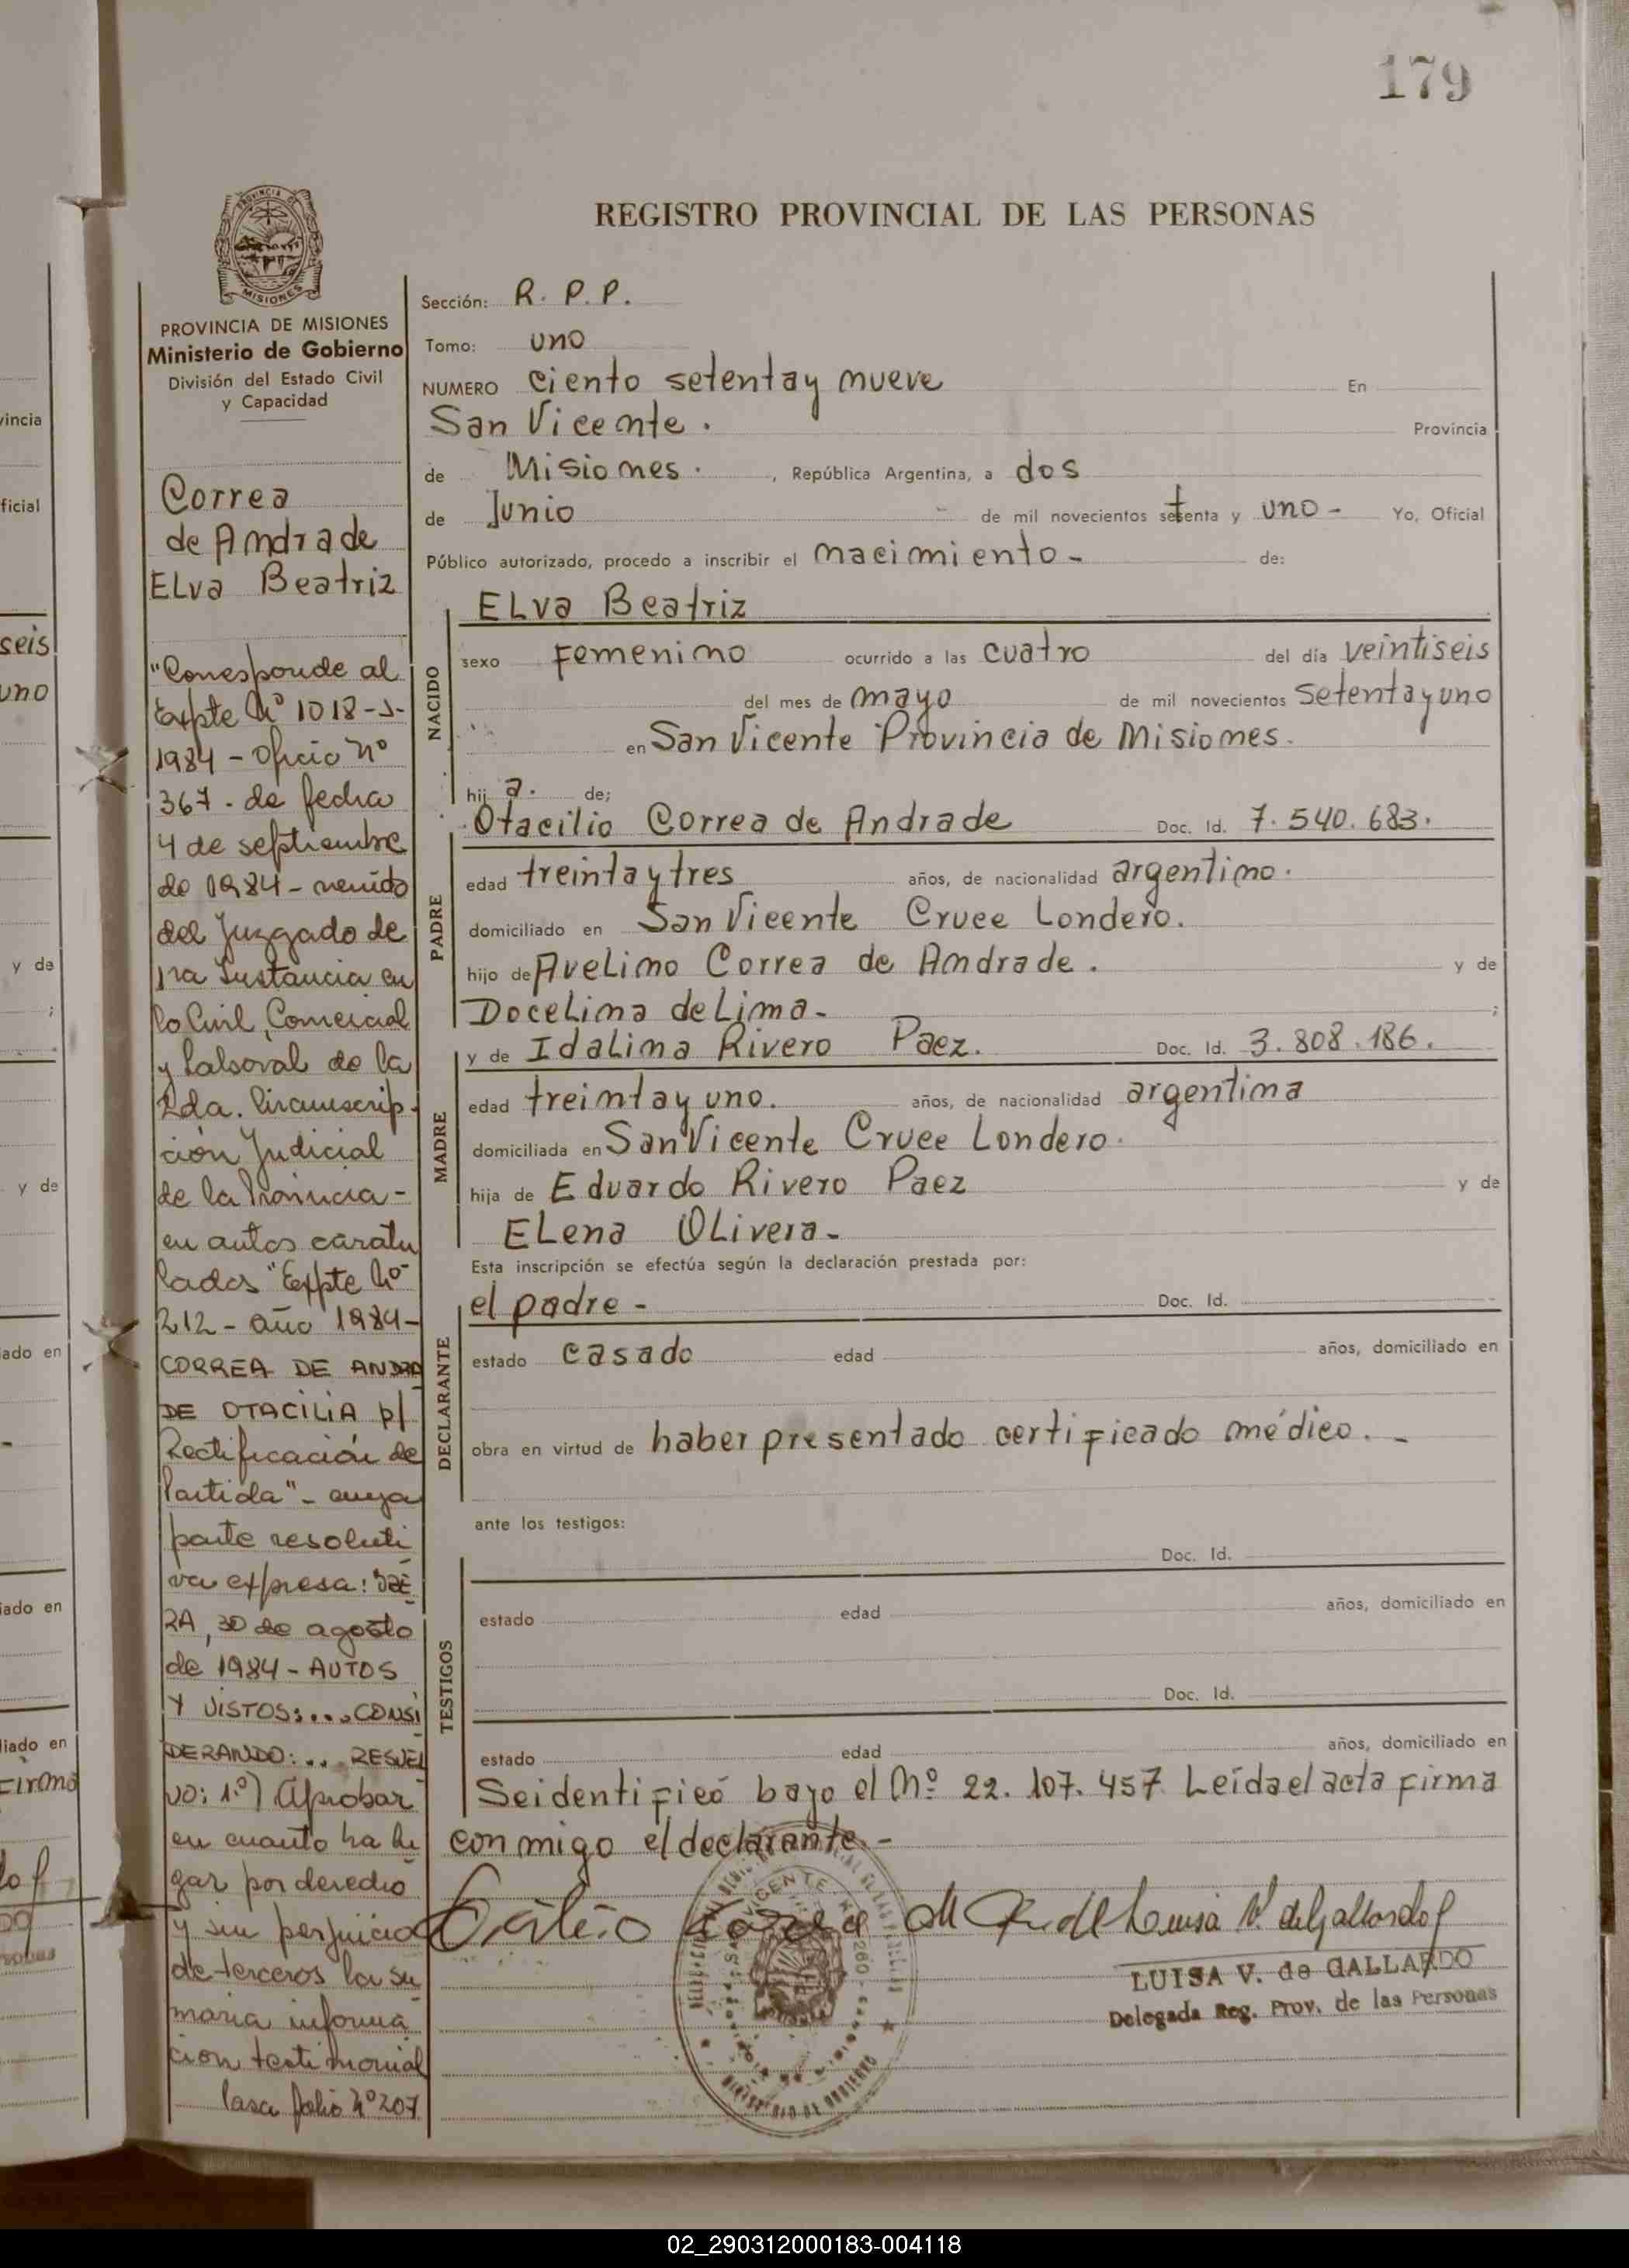 179
REGISTRO PROVINCIAL DE LAS PERSONAS
PROVINCIA
MISIONES
PROVINCIA DE MISIONES
Ministerio de Gobierno
División del Estado Civil
y Capacidad
Correa
de Andrade
ELva Beatriz
"Corresponde al
Expte Nº 1018-J-
1984 - Oficio Nº
367 - de fecha
4 de septiembre
de 1984 - venido
del Juzgado de
1ra Instancia en
lo Civil, Comercial
y Laboral de la
2da. Circunscrip-
ción Judicial
de la Provincia -
en autos caratu
lados "Expte Nº
212 - año 1984 -
CORREA DE ANDRA
DE OTACILIA p/
Rectificación de
Partida" - cuya
parte resoluti
va expresa: "OBE
RA, 30 de agosto
de 1984 - AUTOS
Y VISTOS:... CONSI
DERANDO:... RESUEL
VO: 1º) Aprobar
en cuanto ha lu
gar por derecho
y sin perjuicio
de terceros la su
maria informa
ción testimonial
Pasa folio Nº 207
Sección: R. P. P.
Tomo: uno
NUMERO ciento setenta y nueve En
San Vicente. Provincia
de Misiones. , República Argentina, a dos
de Junio de mil novecientos setenta y uno - Yo, Oficial
Público autorizado, procedo a inscribir el nacimiento - de:
NACIDO
ELva Beatriz
sexo Femenino ocurrido a las cuatro del día veintiseis
del mes de mayo de mil novecientos setenta y uno
en San Vicente Provincia de Misiones.
hij a. de;
PADRE
Otacilio Correa de Andrade Doc. Id. 7.540.683.
edad treinta y tres años, de nacionalidad argentino.
domiciliado en San Vicente Cruce Londero.
hijo de Avelino Correa de Andrade. y de
Docelina de Lima - ;
MADRE
y de Idalina Rivero Paez. Doc. Id. 3.808.186.
edad treinta y uno. años, de nacionalidad argentina
domiciliada en San Vicente Cruce Londero.
hija de Eduardo Rivero Paez y de
ELena OLivera -
Esta inscripción se efectúa según la declaración prestada por:
DECLARANTE
el padre - Doc. Id.
estado casado edad años, domiciliado en
obra en virtud de haber presentado certificado médico. -
ante los testigos:
TESTIGOS
Doc. Id.
estado edad años, domiciliado en
Doc. Id.
estado edad años, domiciliado en
Se identificó bajo el Nº 22.107.457 Leída el acta firma
conmigo el declarante. -
Luisa V. de Gallardo
LUISA V. de GALLARDO
Delegada Reg. Prov. de las Personas
vincia
ficial
seis
uno
y de
;
y de
ado en
iado en
liado en
Firma
02_290312000183-004118